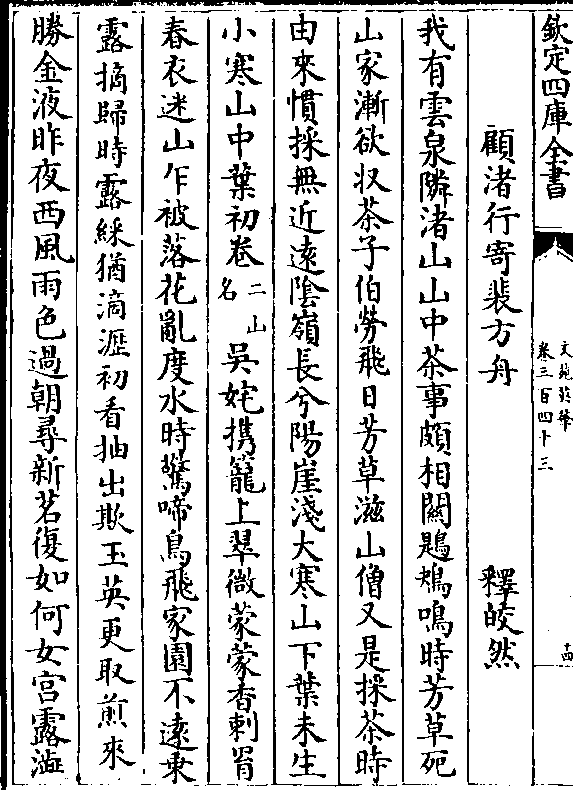 欽定四庫全書
文苑英華
卷三百四十三
十四
顧渚行寄裴方舟
釋皎然
我有雲泉隣渚山山中茶事頗相關鶗鴂鳴時芳草死
山家漸欲收茶子伯勞飛日芳草滋山僧又是採茶時
由來慣採無近遠陰嶺長兮陽崖淺大寒山下葉未生
小寒山中葉初卷二山名吳姹携籠上翠微蒙蒙香刺罥
春衣迷山乍被落花亂度水時驚啼鳥飛家園不遠乗
露摘歸時露綵猶滴瀝初看抽出欺玉英更取煎來
勝金液昨夜西風雨色過朝尋新茗復如何女宫露澁